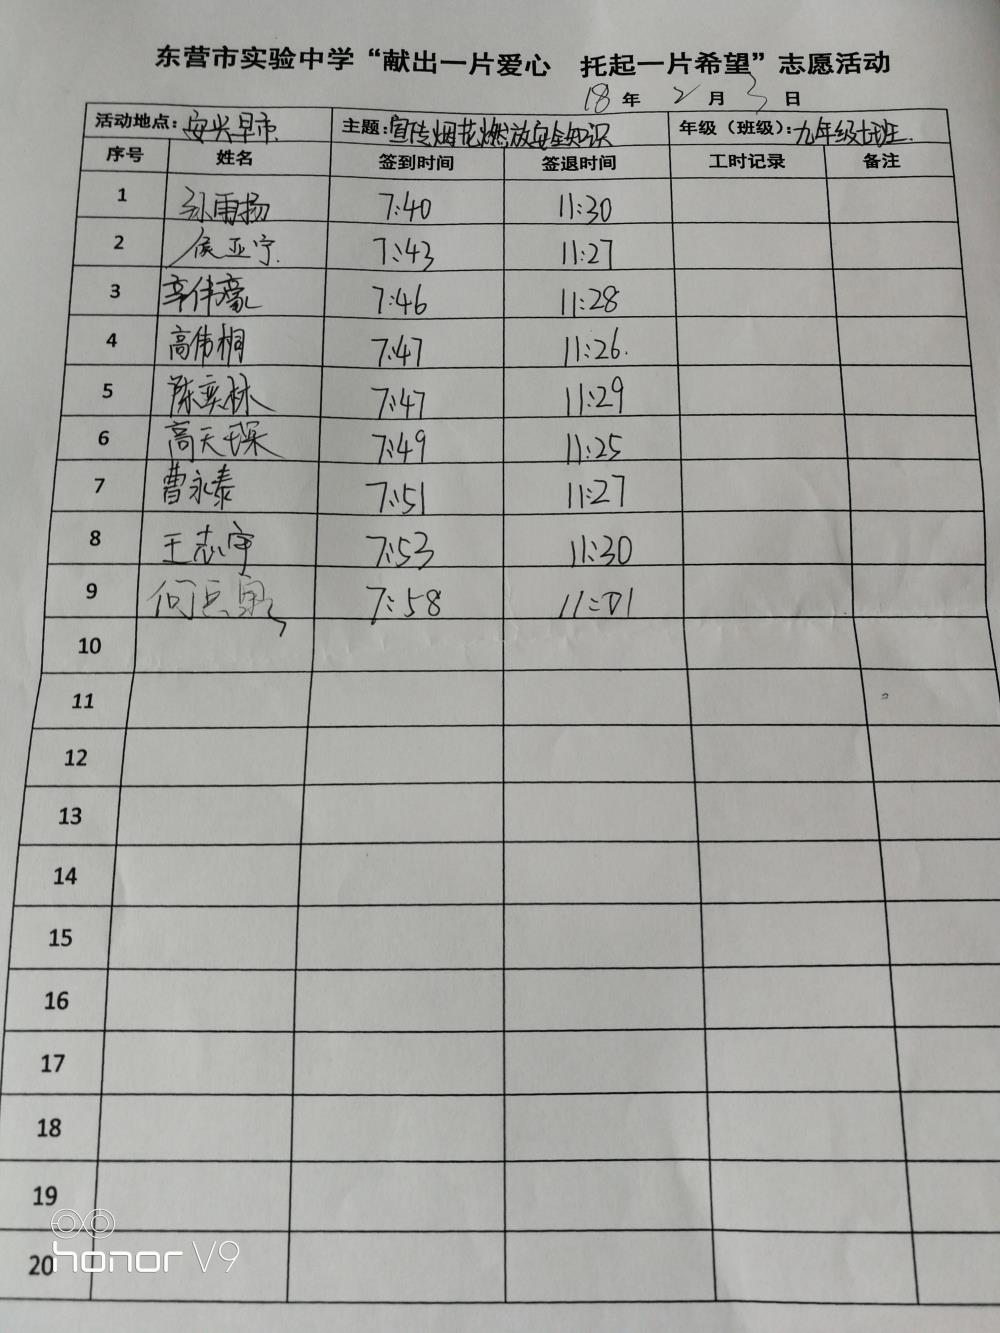 东营市实验中学“献出一片爱心 托起一片希望”志愿活动
18年 2月 3日
活动地点：安兴早市 主题：宣传烟花燃放安全知识 年级（班级）：九年级七班
序号 姓名 签到时间 签退时间 工时记录 备注
1 孙雨扬 7:40 11:30
2 侯亚宁 7:43 11:27
3 辛伟豪 7:46 11:28
4 高伟桐 7:47 11:26.
5 陈奕林 7:47 11:29
6 高天琛 7:49 11:25
7 曹永泰 7:51 11:27
8 王志宇 7:53 11:30
9 7:58 11:01
10
11
12
13
14
15
16
17
18
19
20
honor V9